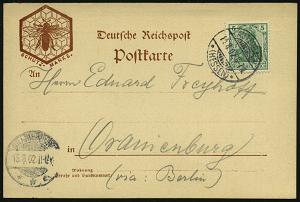 Deutsche Reichspost
Postkarte
SCHUTZ-MARKE.
An Herrn Eduard Freyhoff
in Oranienburg
Wohnung
(Straße und Hausnummer)
(via: Berlin)
5
(HESSEN)
15.8.02